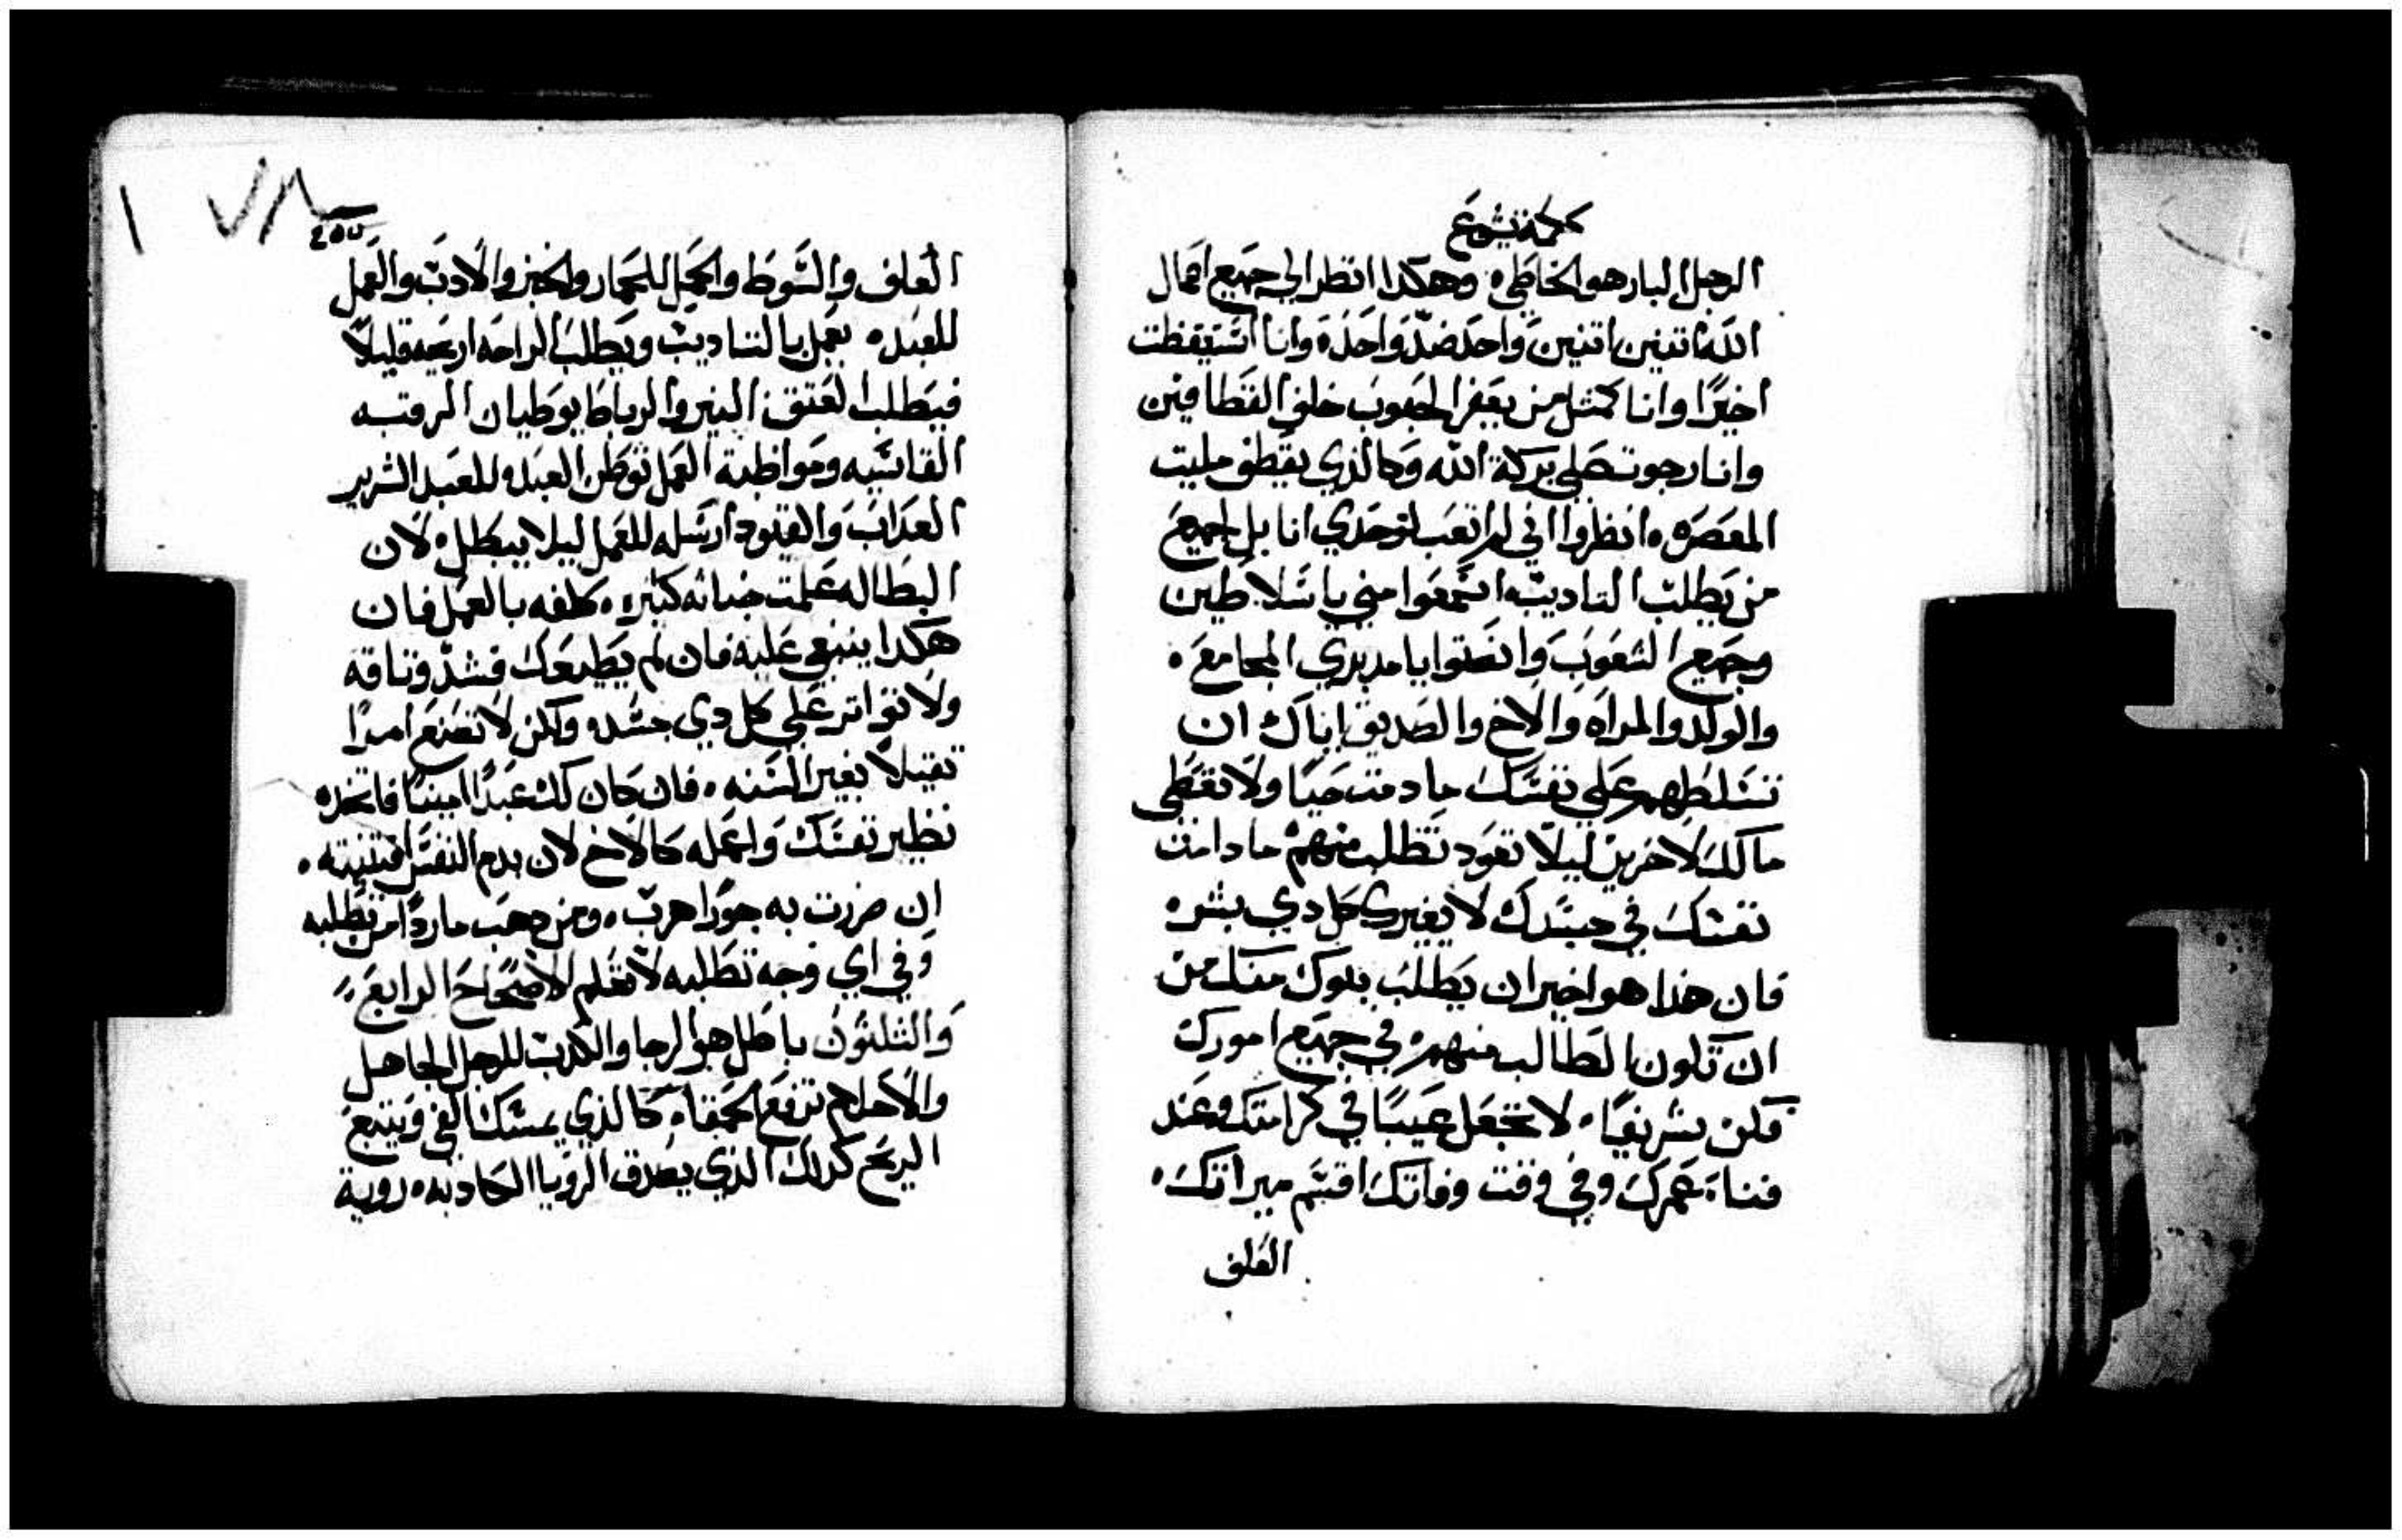 حكمة يشوع
الرجل البار هو الخاطي. وهكدا انظر الي جميع اعمال
الله اتنين اتنين واحد ضد واحده وانا استيقظت
اخيرًا وانا كمتل من يعفر الحبوب خلف القطافين
وانا رجوت علي بركة الله وكالذي يقطف مليت
المعصره. انظروا اني لم اتعب لوحدي انا بل لجميع
من يطلب التاديب. اسمعوا مني يا سلاطين
وجميع الشعوب وانصتوا يا مدبري المجامع.
والولد والمراه والاخ والصديق اياك ان
تسلطهم علي نفسك ما دمت حيًا ولا تعطي
مالك لاخرين ليلا تعود تطلب منهم ما دامت
نفسك في جسدك لا يغيرك كل دي بشر.
فان هذا هو اخير ان يطلب بنوك منك من
ان تكون الطالب منهم. في جميع امورك
فكن شريفًا. لا تجعل عيبًا في كرامتك وعند
فناء عمرك وفي وقت وفاتك اقسم ميراتك.
العلف
٢٥٥
العلف والسوط والحمل للحمار والخبز والادب والعمل
للعبد. يعمل بالتاديب ويطلب الراحه ارخيه قليلاً
فيطلب العتق. النير والرباط يوطيان الرقبه
القاسيه ومواظبة العمل توطي العبد. للعبد الشرير
العداب والقيود ارسله للعمل ليلا يبطل. لان
البطاله علمت خباته كتيره. كلفه بالعمل فان
هكدا ينبغي عليه فان لم يطيعك فشد وتاقه
ولا تتواتر علي كل دي جسد. ولكن لا تصنع امرًا
تقيلاً بغير السنه. فان كان لك عبدًا امينًا فاتخده
نظير نفسك واعمله كالاخ لان بدم النفس اقتنيته.
ان ضررت به جورًا هرب. ومن دهب ماردًا من تطلبه
وفي اي وجه تطلبه لا تعلم الاصحاح الرابع
والتلتون باطل هو الرجا والكدب للرجل الجاهل
والاحلام ترفع الحمقاء. كالذي يمسك الفي ويتبع
الريح كدلك الذي يصدق الرويا الكادبه. روية